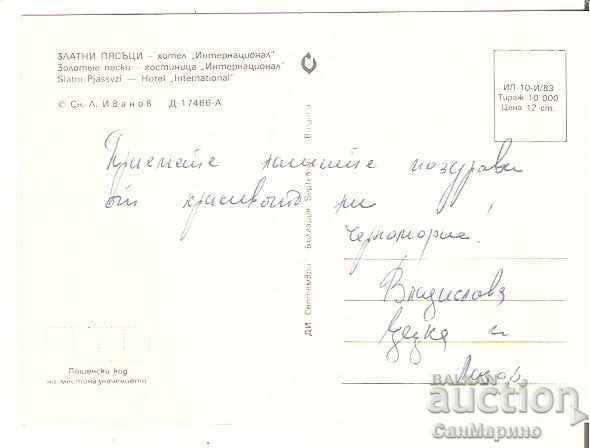 ЗЛАТНИ ПЯСЪЦИ – хотел „Интернационал“
Золотые пески – гостиница „Интернационал“
Slatni Pjassyzi — Hotel „International“
© Сн. Л. Иванов Д-17466-А
ИЛ 10-И/83
Тираж 10 000
Цена 12 ст.
Приемайте нашите поздрави
от красивото ни
Черноморие!
Владислава
Цецка и
ДИ Септември България Septe Bulgaria
Пощенски код
на местоназначението
BALKAN
auction
СанМарино